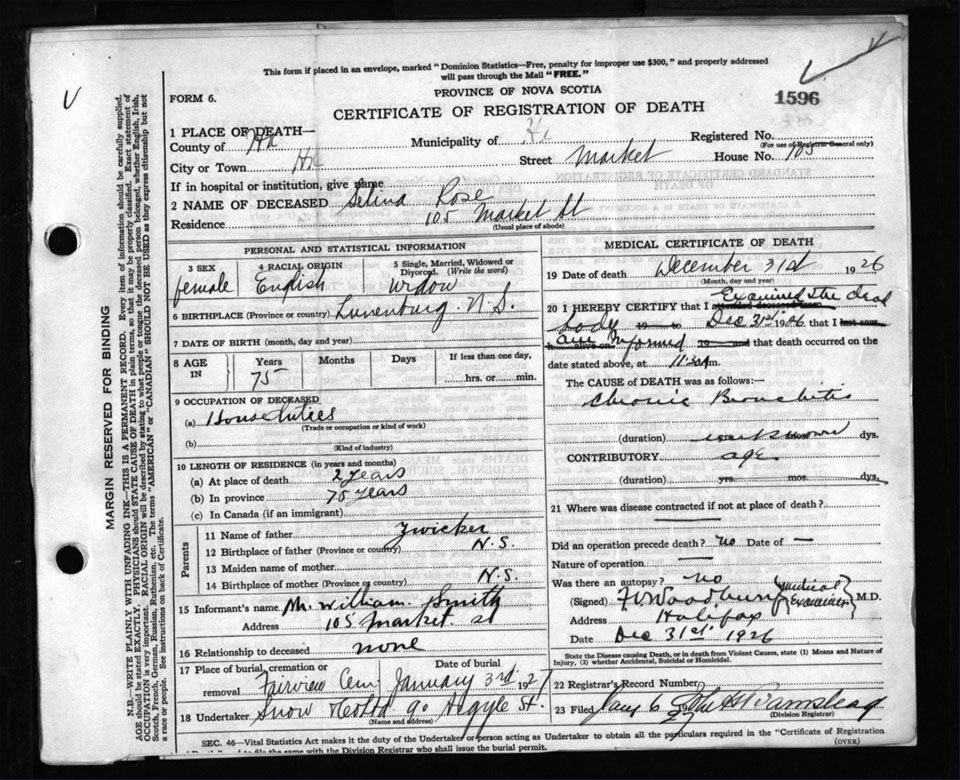 This form if placed in an envelope, marked "Dominion Statistics—Free, penalty for improper use $300," and properly addressed
will pass through the Mail "FREE."
PROVINCE OF NOVA SCOTIA
FORM 6.
1596
CERTIFICATE OF REGISTRATION OF DEATH
1 PLACE OF DEATH—
County of Hx Municipality of Hx Registered No.
(For use of Registrar General only)
City or Town Hx Street Market House No. 105
If in hospital or institution, give name
2 NAME OF DECEASED Selina Rose
Residence 105 Market St
(Usual place of abode)
PERSONAL AND STATISTICAL INFORMATION
3 SEX 4 RACIAL ORIGIN 5 Single, Married, Widowed or
Divorced. (Write the word)
female English Widow
6 BIRTHPLACE (Province or country) Lunenburg. N.S.
7 DATE OF BIRTH (month, day and year)
8 AGE IN Years Months Days If less than one day,
75 hrs. or min.
9 OCCUPATION OF DECEASED
(a) House duties
(Trade or occupation or kind of work)
(b)
(Kind of industry)
10 LENGTH OF RESIDENCE (in years and months)
(a) At place of death 2 years
(b) In province 75 years
(c) In Canada (if an immigrant)
Parents
11 Name of father Zwicker
12 Birthplace of father (Province or country) N.S.
13 Maiden name of mother
14 Birthplace of mother (Province or country) N.S.
15 Informant's name Mr. William Smith
Address 105 Market. st
16 Relationship to deceased none
17 Place of burial, cremation or Date of burial
removal Fairview Cem January 3rd 1927
18 Undertaker Snow & Co Ltd 90 Argyle St.
(Name and address)
MEDICAL CERTIFICATE OF DEATH
19 Date of death December 31st 1926
(Month, day and year)
Examined the dead
20 I HEREBY CERTIFY that I attended deceased from
body 19 to Dec 31st 192 that I last saw
am informed
h alive on 19 and that death occurred on the
date stated above, at 11:30 m.
The CAUSE OF DEATH was as follows:—
Chronic Bronchitis
(duration) unknown dys.
CONTRIBUTORY age
(duration) yrs. mos. dys.
21 Where was disease contracted if not at place of death?
Did an operation precede death? no Date of —
Nature of operation —
Was there an autopsy? no
(Signed) Woodbury (Medical Examiner) M.D.
Address Halifax
Date Dec 31st 1926
State the Disease causing Death, or in death from Violent Causes, state (1) Means and Nature of
Injury, (2) whether Accidental, Suicidal or Homicidal.
22 Registrar's Record Number
23 Filed Jany 6
(Division Registrar)
SEC. 46—Vital Statistics Act makes it the duty of the Undertaker or person acting as Undertaker to obtain all the particulars required in the "Certificate of Registration
of Death" and to file the same with the Division Registrar who shall issue the burial permit.
(OVER)
MARGIN RESERVED FOR BINDING
N.B.—WRITE PLAINLY WITH UNFADING INK—THIS IS A PERMANENT RECORD. Every item of information should be carefully supplied.
AGE should be stated EXACTLY. PHYSICIANS should STATE CAUSE OF DEATH in plain terms, so that it may be properly classified. Exact statement of
OCCUPATION is very important. RACIAL ORIGIN will be described by stating to what people or tongue the deceased person belonged, whether English, Irish,
Scotch, French, German, Russian, Ruthenian, etc. The terms "AMERICAN" or "CANADIAN" SHOULD NOT BE USED as they express citizenship but not
a race or people. See instructions on back of Certificate.